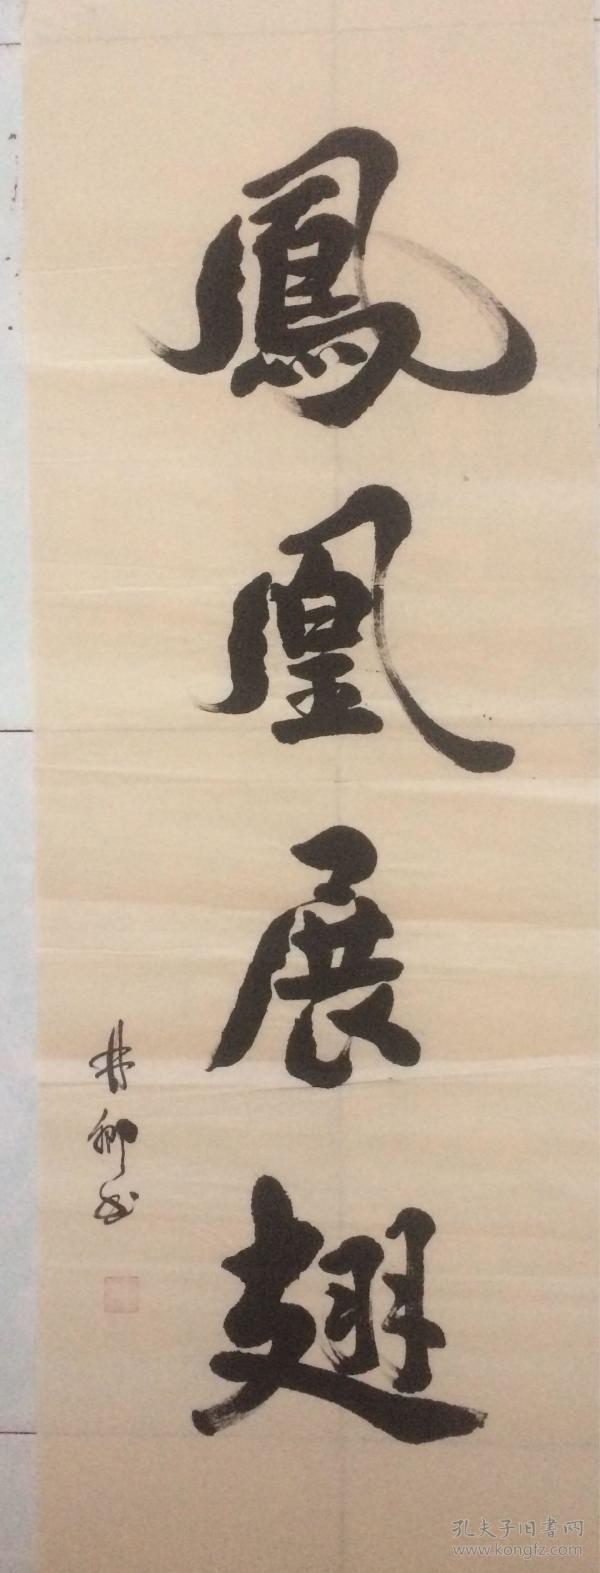 鳳凰展翅
林卿书
孔夫子旧書网
www.kongfz.com